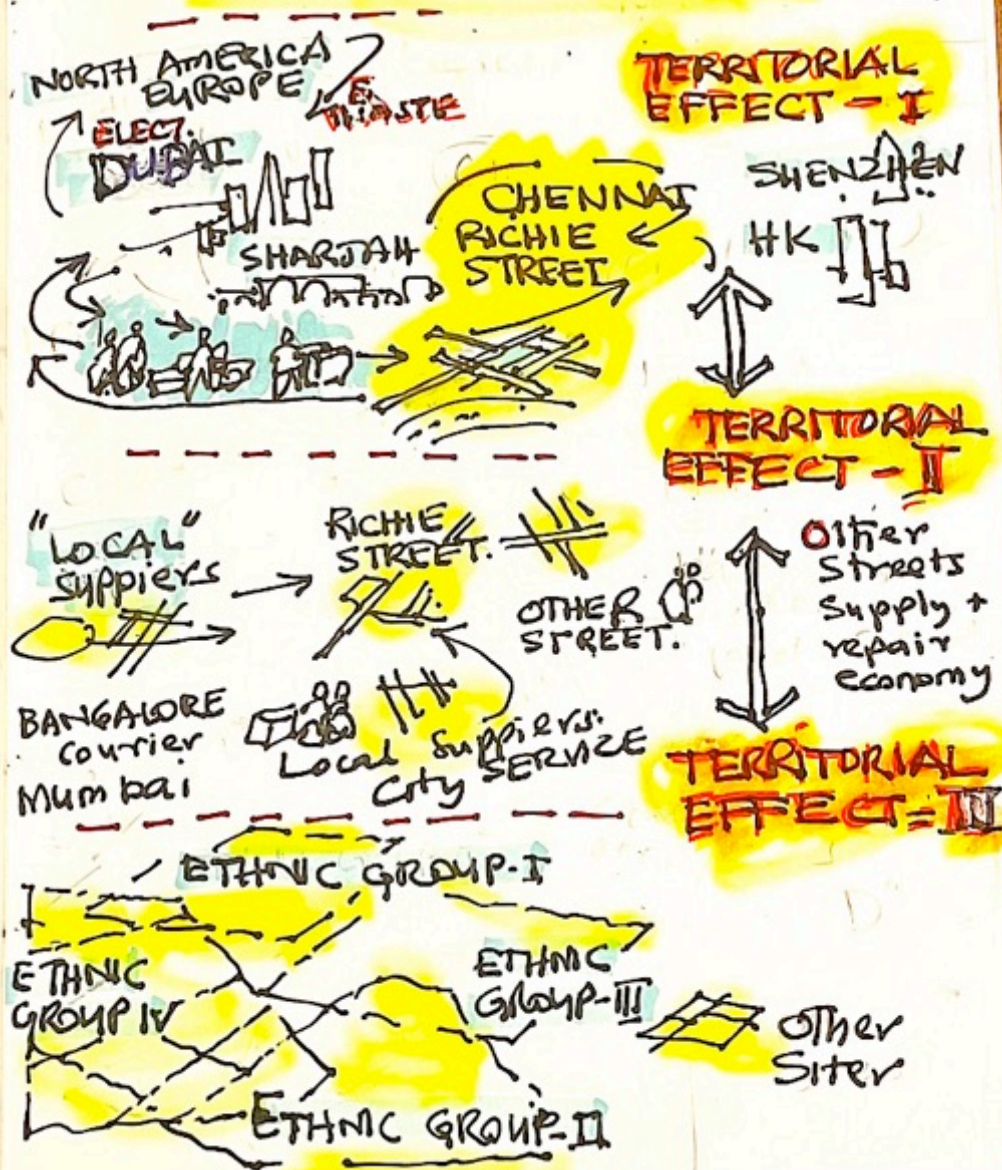 NORTH AMERICA
EUROPE
E.
WASTE
TERRITORIAL
EFFECT - I
ELECT.
DUBAI
SHENZHEN
HK
CHENNAI
RICHIE
STREET
SHARJAH
TERRITORIAL
EFFECT - II
"LOCAL"
suppiers
RICHIE
STREET.
OTHER
STREET.
Other
Streets
Supply +
repair
economy
BANGALORE
Courier
Mumbai
Local Suppliers.
City SERVICE
TERRITORIAL
EFFECT = III
ETHNIC GROUP-I
ETHNIC
GROUP IV
ETHNIC
GROUP-III
Other
Siter
ETHNIC GROUP-II